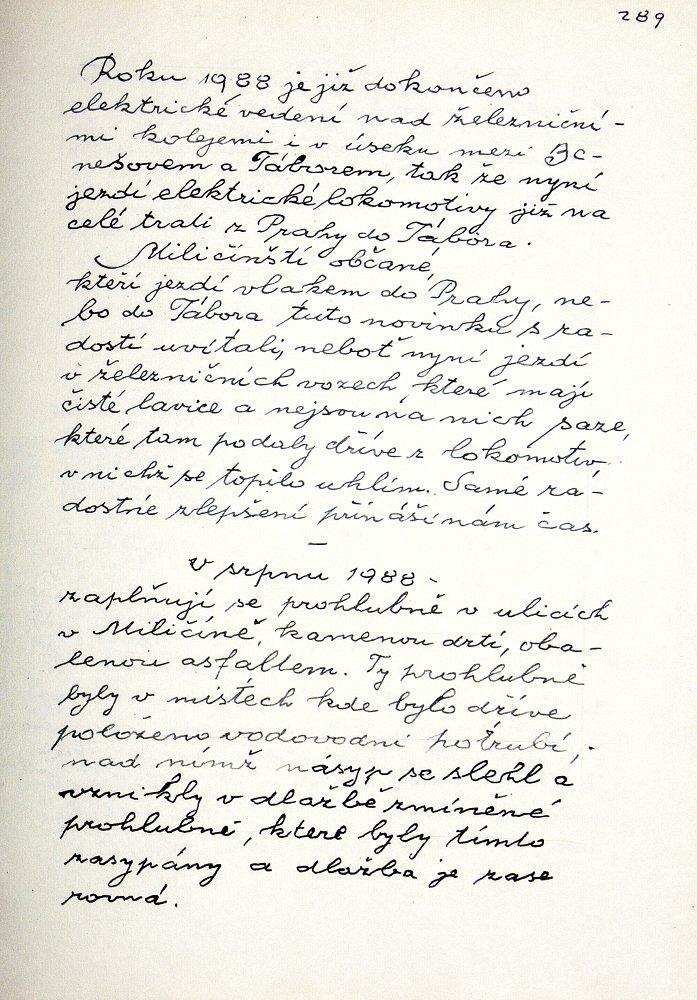 289
Roku 1988 je již dokončeno
elektrické vedení nad železniční-
mi kolejemi i v úseku mezi Be-
nešovem a Táborem, tak že nyní
jezdí elektrické lokomotivy již na
celé trati z Prahy do Tábora.
Miličínští občané,
kteří jezdí vlakem do Prahy, ne-
bo do Tábora tuto novinku s ra-
dostí uvítali, neboť nyní jezdí
v železničních vozech, které mají
čisté lavice a nejsou na nich saze,
které tam padaly dříve z lokomotiv,
v nichž se topilo uhlím. Samé ra-
dostné zlepšení přináší nám čas.
—
V srpnu 1988 -
zaplňují se prohlubně v ulicích
v Miličíně, kamenou drtí, oba-
lenou asfaltem. Ty prohlubně
byly v místech kde bylo dříve
položeno vodovodní potrubí,
nad nímž násyp se slehl a
vznikly v dlažbě zmíněné
prohlubně, které byly tímto
zasypány a dlažba je zase
rovná.